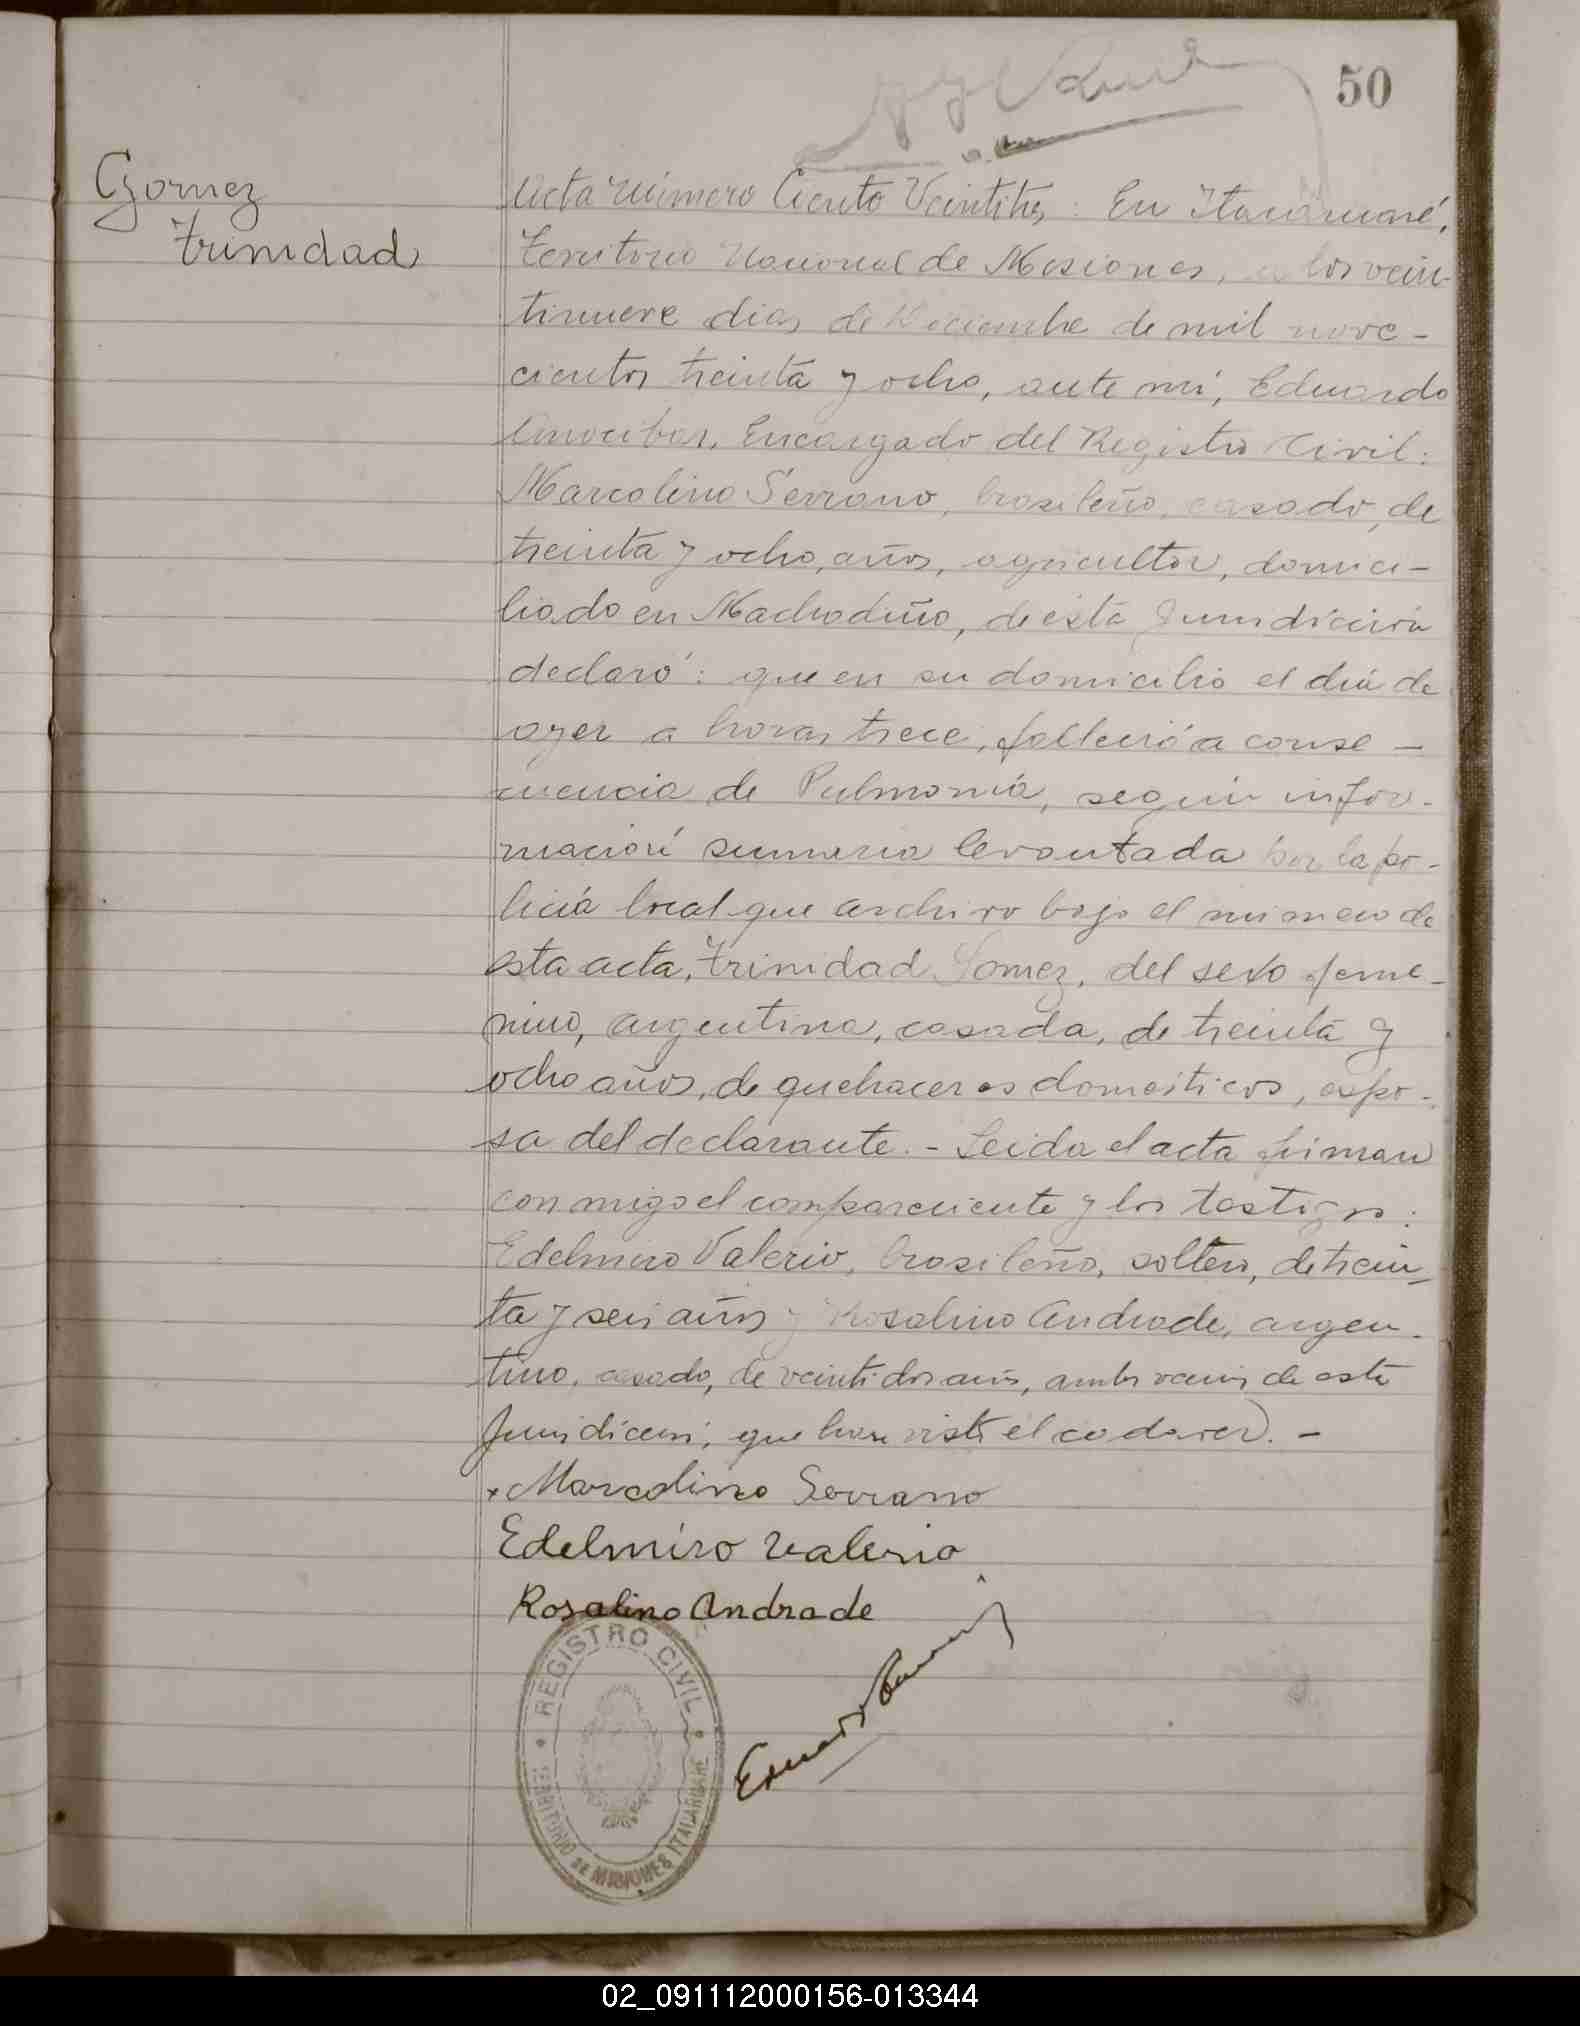 50
Gomez
Trinidad
Acta Número Ciento Veintitrés: En Itacaruaré,
Territorio Nacional de Misiones, a los vein-
tinueve dias de Diciembre de mil nove-
cientos treinta y ocho, ante mí, Eduardo
Encargado del Registro Civil:
Marcolino Serrano, brasileño, casado, de
treinta y ocho, años, agricultor, domici-
liado en Machadiño, de ésta Jurisdicción
declaró: que en su domicilio el día de
ayer a horas trece, falleció a conse-
cuencia de Pulmonía, según infor-
mación sumaria levantada por la po-
licía local que archivo bajo el número de
esta acta, Trinidad Gomez, del sexo feme-
nino, argentina, casada, de treinta y
ocho años, de quehaceres domésticos, espo-
sa del declarante.- Leida el acta firman
conmigo el compareciente y los testigos:
Edelmiro Valerio, brasileño, soltero, de trein-
ta y seis años y Rosalino Andrade, argen-
tino, casado, de veintidos años, ambos vecinos de esta
Jurisdicción, que han visto el cadaver. -
Marcolino Serrano
Edelmiro Valerio
Rosalino Andrade
REGISTRO CIVIL
TERRITORIO DE MISIONES ITACARUARE
02_091112000156-013344